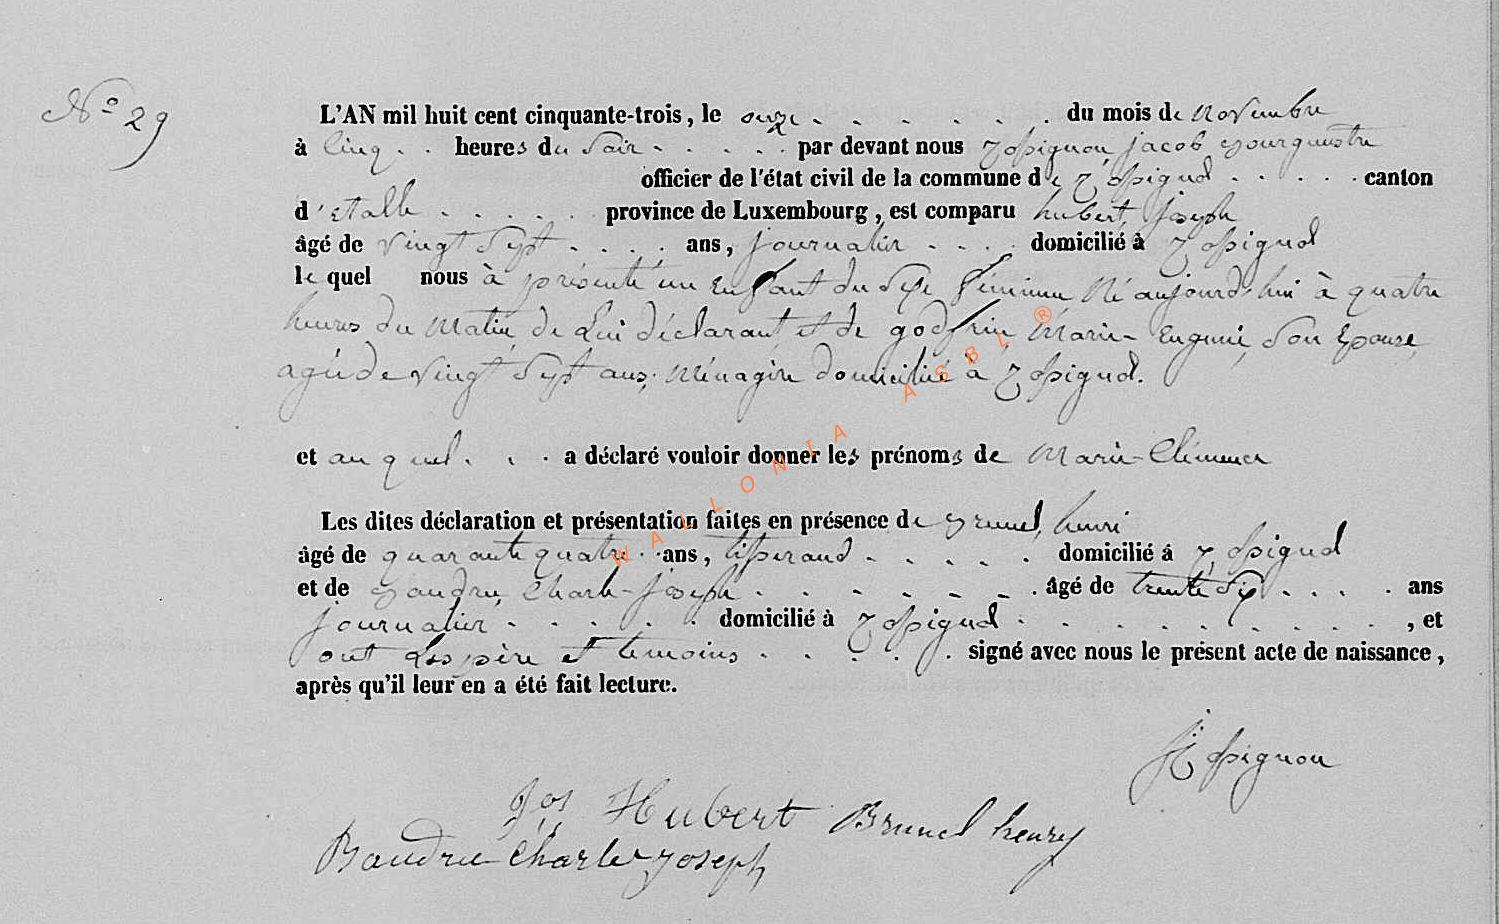 N° 29
L'AN mil huit cent cinquante-trois, le onze . . . . . . . du mois de Novembre
à cinq . . heures du Soir . . . . . par devant nous Rossignon, jacob Bourguestre
officier de l'état civil de la commune de Rossignol . . . . . canton
d'Etalle . . . . . province de Luxembourg, est comparu hubert, joseph
âgé de vingt Sept . . . . ans, journalier . . . . domicilié à Rossignol
le quel nous à présenté un Enfant du Sexe féminin Né aujourd-hui à quatre
heures du Matin, de Lui déclarant, et de godfrin, Marie-Eugenie, Son Epouse,
agée de vingt Sept ans, Ménagère domiciliée à Rossignol.
et au quel . . . a déclaré vouloir donner les prénoms de Marie-Clémence
Les dites déclaration et présentation faites en présence de Brunel, henri
âgé de quarante quatre . . ans, tisserand . . . . . domicilié à Rossignol
et de Baudru, Charle-joseph . . . . . . . âgé de trente Six . . . . ans
journalier . . . . . domicilié à Rossignol . . . . . . . . . , et
ont Les père et temoins . . . . . signé avec nous le présent acte de naissance,
après qu'il leur en a été fait lecture.
JRossignon
Jos Hubert Brunel henry
Baudru Charle joseph
WALLONIA ASBL ®